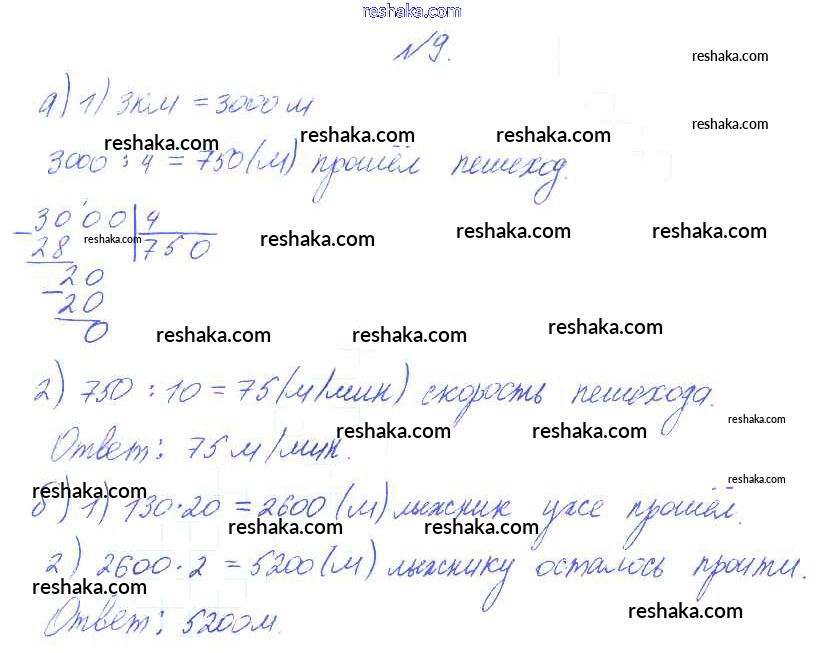 reshaka.com
№9.
reshaka.com
а) 1) 3км = 3000м
reshaka.com
reshaka.com reshaka.com reshaka.com
3000 : 4 = 750(м) прошёл пешеход.
3000 | 4
reshaka.com reshaka.com reshaka.com reshaka.com
- 28 750
20
- 20
0
reshaka.com reshaka.com reshaka.com
2) 750 : 10 = 75(м/мин) скорость пешехода.
reshaka.com
reshaka.com reshaka.com
Ответ: 75 м/мин.
reshaka.com
reshaka.com
б) 1) 130·20 = 2600 (м) лыжник уже прошёл.
reshaka.com reshaka.com
2) 2600·2 = 5200(м) лыжнику осталось пройти.
reshaka.com
reshaka.com
Ответ: 5200м.